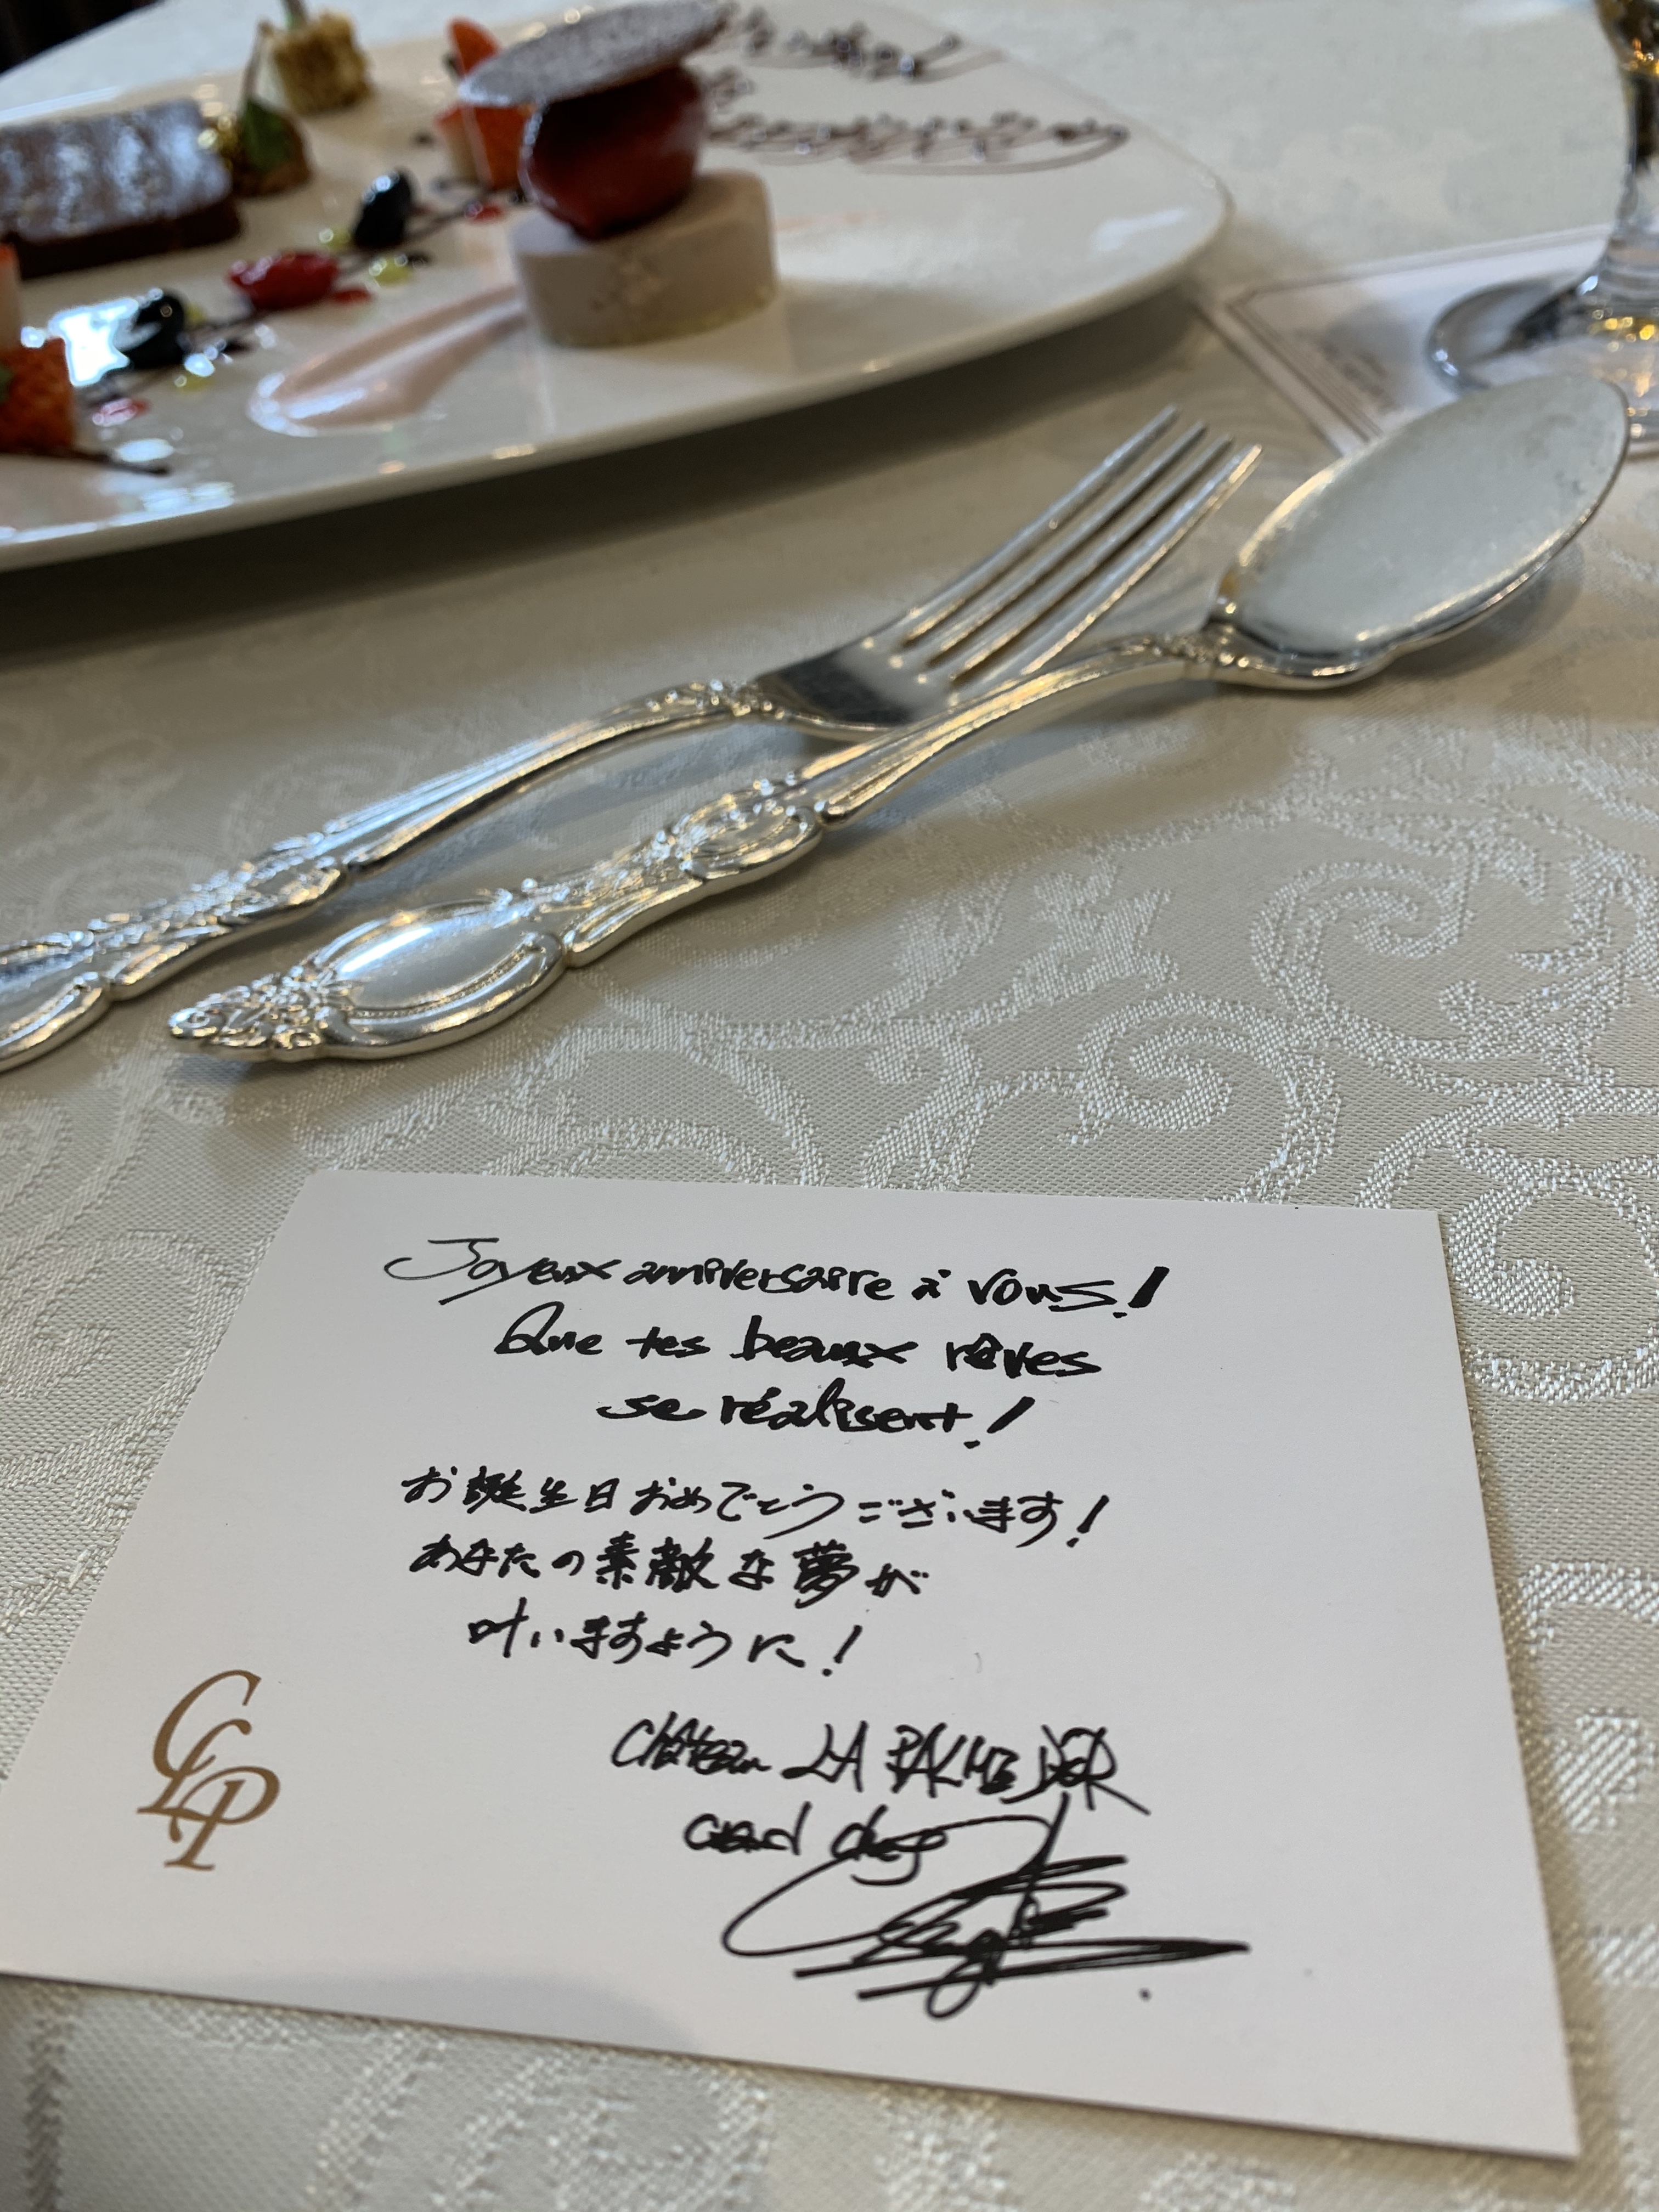 Joyeux anniversaire à vous!
Que tes beaux rêves
se réalisent!
お誕生日おめでとうございます!
あなたの素敵な夢が
叶いますように!
Château LA PALME D'OR
Grand chef
CLP